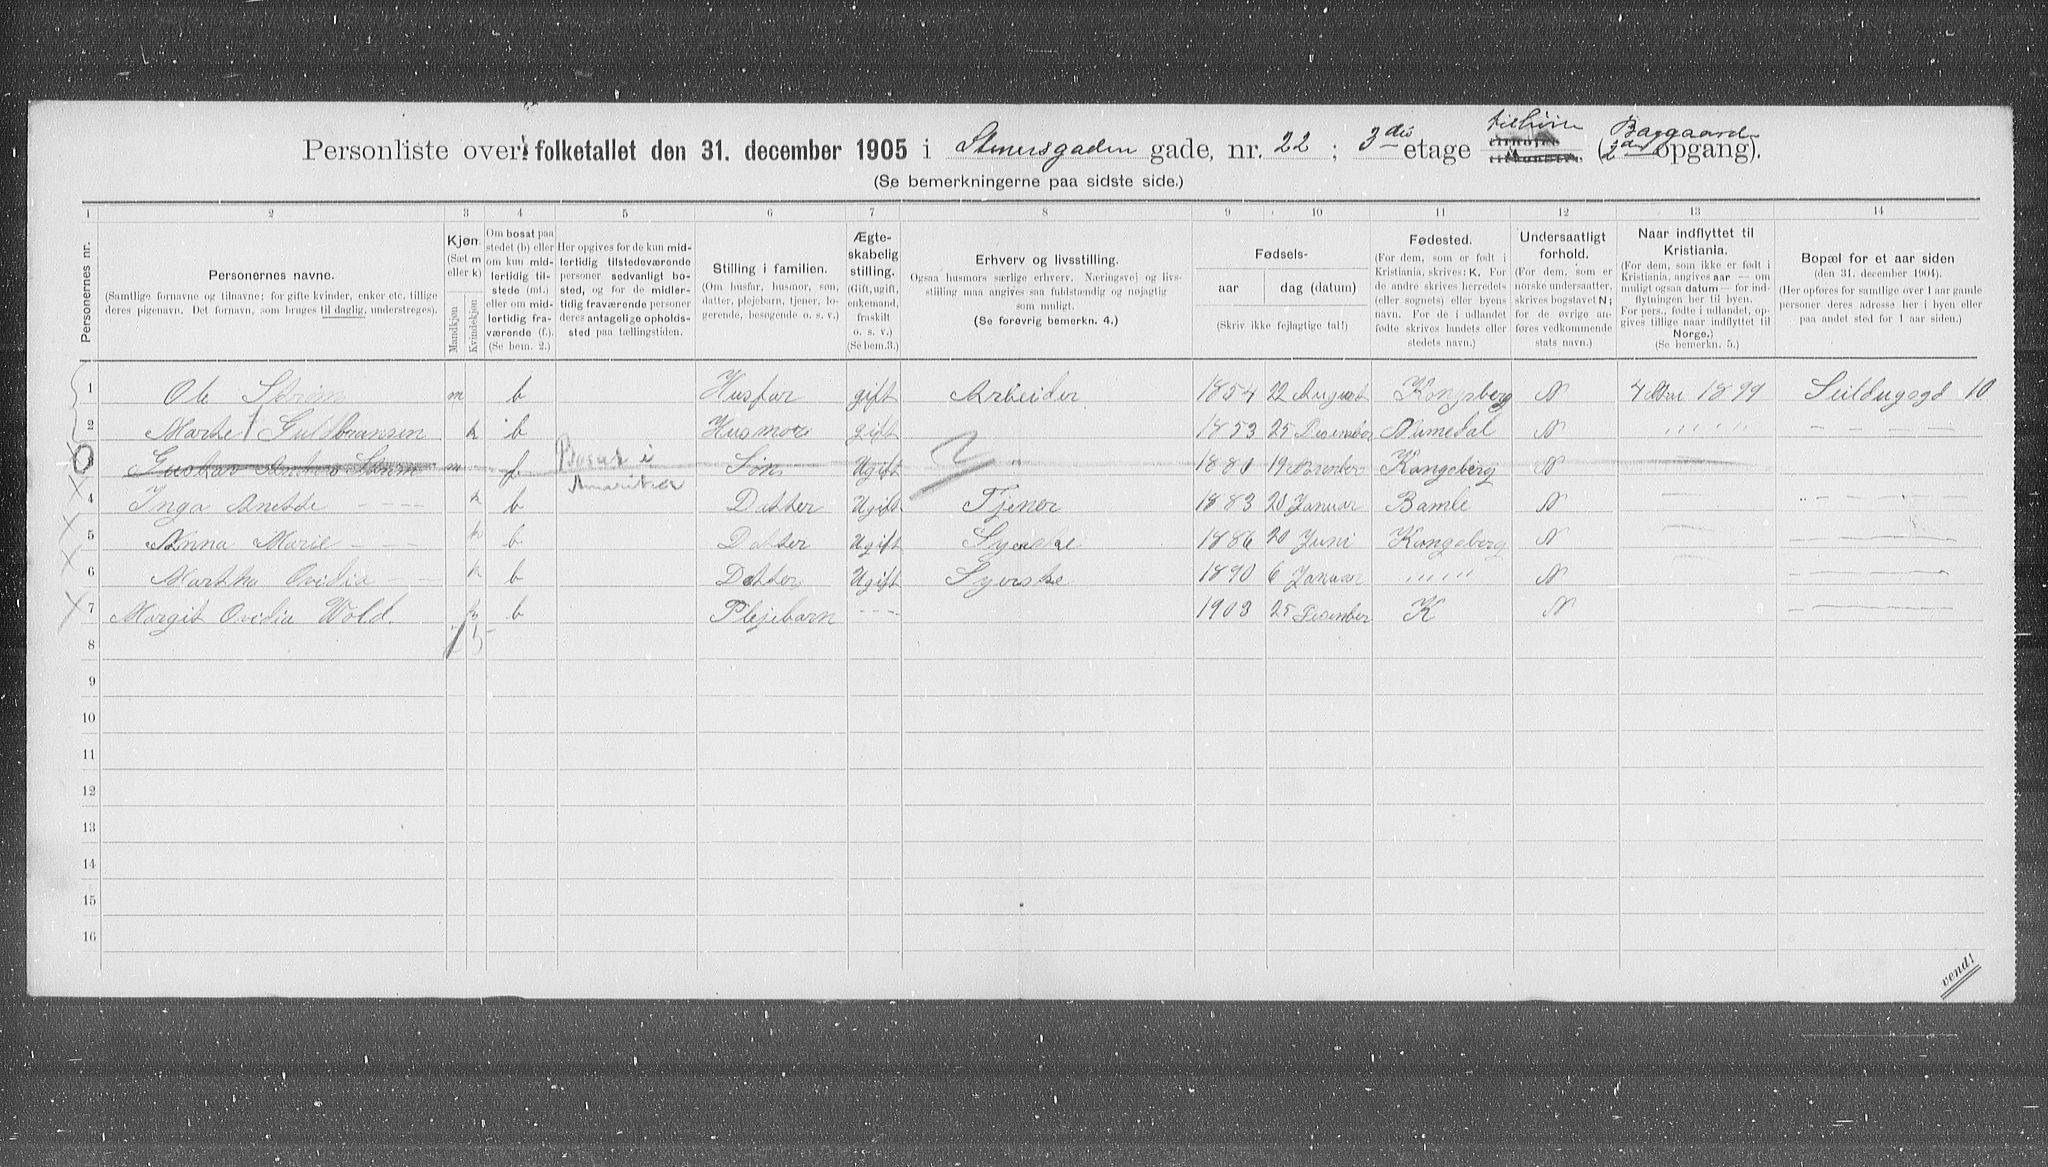 Personliste over folketallet den 31. december 1905 i Stenersgaden gade, nr. 22 ; 3die etage tilhøire (Baggaard 2den opgang).
(Se bemerkningerne paa sidste side.)
1 2 3 4 5 6 7 8 9 10 11 12 13 14
Personernes nr.
Personernes navne.
(Samtlige fornavne og tilnavne; for gifte kvinder, enker etc. tillige deres pigenavn. Det fornavn, som bruges til daglig, understreges).
Kjøn.
(Sæt m eller k)
Mandkjøn
Kvindekjøn
Om bosat paa stedet (b) eller om kun midlertidig tilstede (mt.) eller om midlertidig fraværende (f.)
(Se bem. 2.)
Her opgives for de kun midlertidig tilstedeværende personer sedvanligt bosted, og for de midlertidig fraværende personer deres antagelige opholdssted paa tællingstiden.
Stilling i familien.
(Om husfar, husmor, søn, datter, plejebarn, tjener, logerende, besøgende o. s. v.)
Ægteskabelig stilling.
(Gift, ugift, enkemand, fraskilt o. s. v.)
(Se bem.3.)
Erhverv og livsstilling.
Ogsaa husmors særlige erhverv. Næringsvej og livsstilling maa angives saa fuldstændig og nøjagtig som muligt.
(Se forøvrig bemerkn. 4.)
Fødsels-
aar
dag (datum)
(Skriv ikke fejlagtige tal!)
Fødested.
(For dem, som er født i Kristiania, skrives: K. For de andre skrives herredets (eller sognets) eller byens navn. For de i udlandet fødte skrives landets eller stedets navn.)
Undersaatligt forhold.
(For dem, som er norske undersaatter, skrives bogstavet N; for de øvrige angives vedkommende stats navn.)
Naar indflyttet til Kristiania.
(For dem, som ikke er født i Kristiania, angives aar — om muligt ogsaa datum — for indflytningen her til byen. For pers., fødte i udlandet, opgives tillige naar indflyttet til Norge.)
(Se bemerkn. 5.)
Bopæl for et aar siden
(den 31. december 1904).
(Her opføres for samtlige over 1 aar gamle personer deres adresse her i byen eller paa andet sted for 1 aar siden.)
1 Ole Strøm m b Husfar gift Arbeider 1854 22 August Kongsberg N 1899 Seildugsgd 10
2 Marte Guldbransen k b Husmor gift 1853 25 Desember Numedal N " " " "
3 Gustav Strøm m f Bosat i Amerika Søn Ugift " 1881 19 Kongsberg N
4 Inga Anette - - - k b Datter Ugift Tjener 1883 20 Januar Bamle N
5 Anna Marie - - - k b Datter Ugift Syerske 1886 20 Juni Kongsberg N
6 Martha Ovidia - - k b Datter Ugift Syerske 1890 6 Januar " " " " N
7 Margit Ovidia Wold. k b Plejebarn - - - 1903 25 Desember K N
1 5
8
9
10
11
12
13
14
15
16
vend!